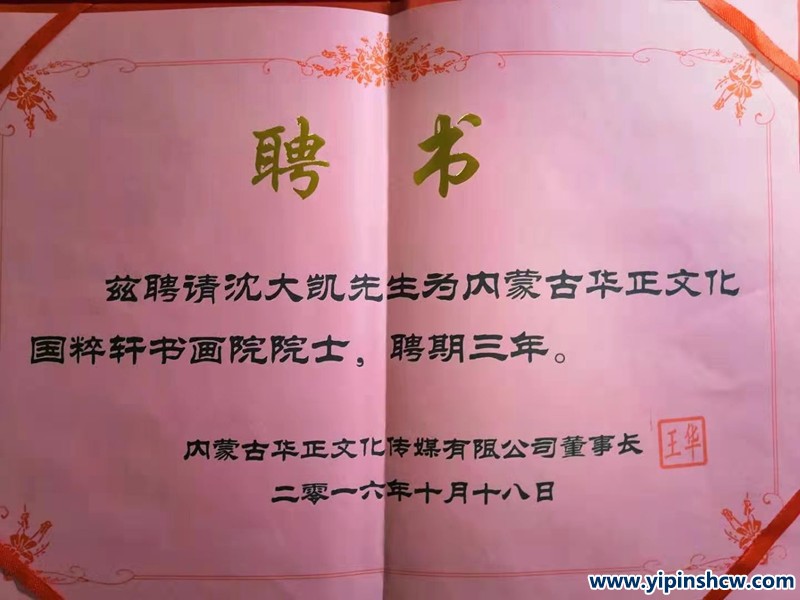 聘 书
兹聘请沈大凯先生为内蒙古华正文化
国粹轩书画院院士，聘期三年。
内蒙古华正文化传媒有限公司董事长
王华
二零一六年十月十八日
www.yipinshcw.com